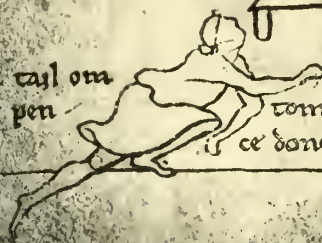 tail om
pen
tom
ce don